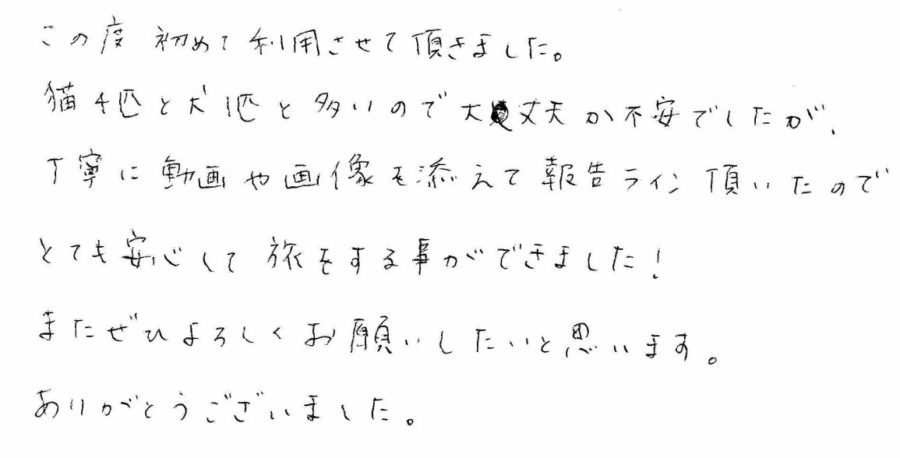 この度 初めて利用させて頂きました。
猫4匹と犬1匹と多いので大丈夫か不安でしたが、
丁寧に動画や画像も添えて報告ライン頂いたので
とても安心して旅をする事ができました!
またぜひよろしくお願いしたいと思います。
ありがとうございました。